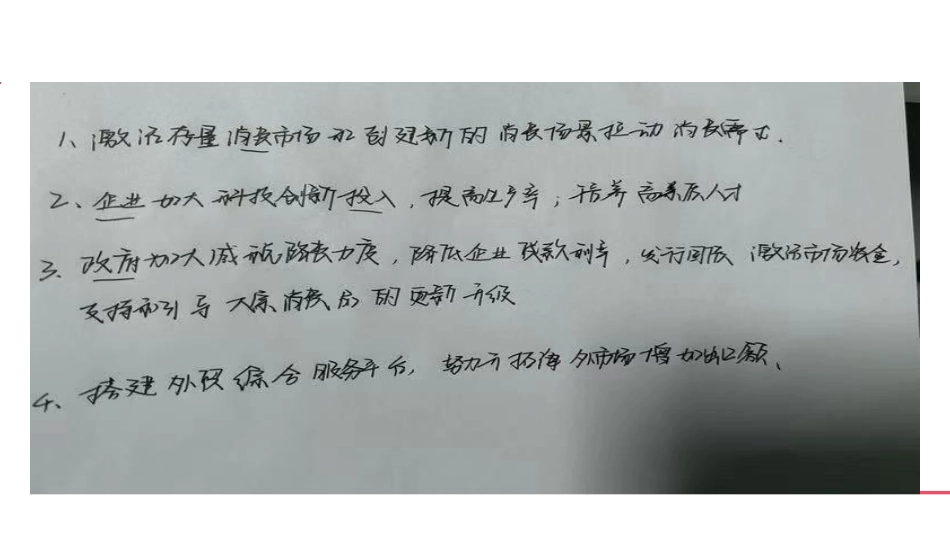 1、激活存量消费市场和创建新的消费场景拉动消费需求.
2、企业加大科技创新投入,提高生产率;培养高素质人才
3、政府加大减税降费力度,降低企业贷款利率,发行国债 激活市场资金,
支持和引导大宗消费品的更新升级
4、搭建外贸综合服务平台,努力开拓海外市场增加出口额、